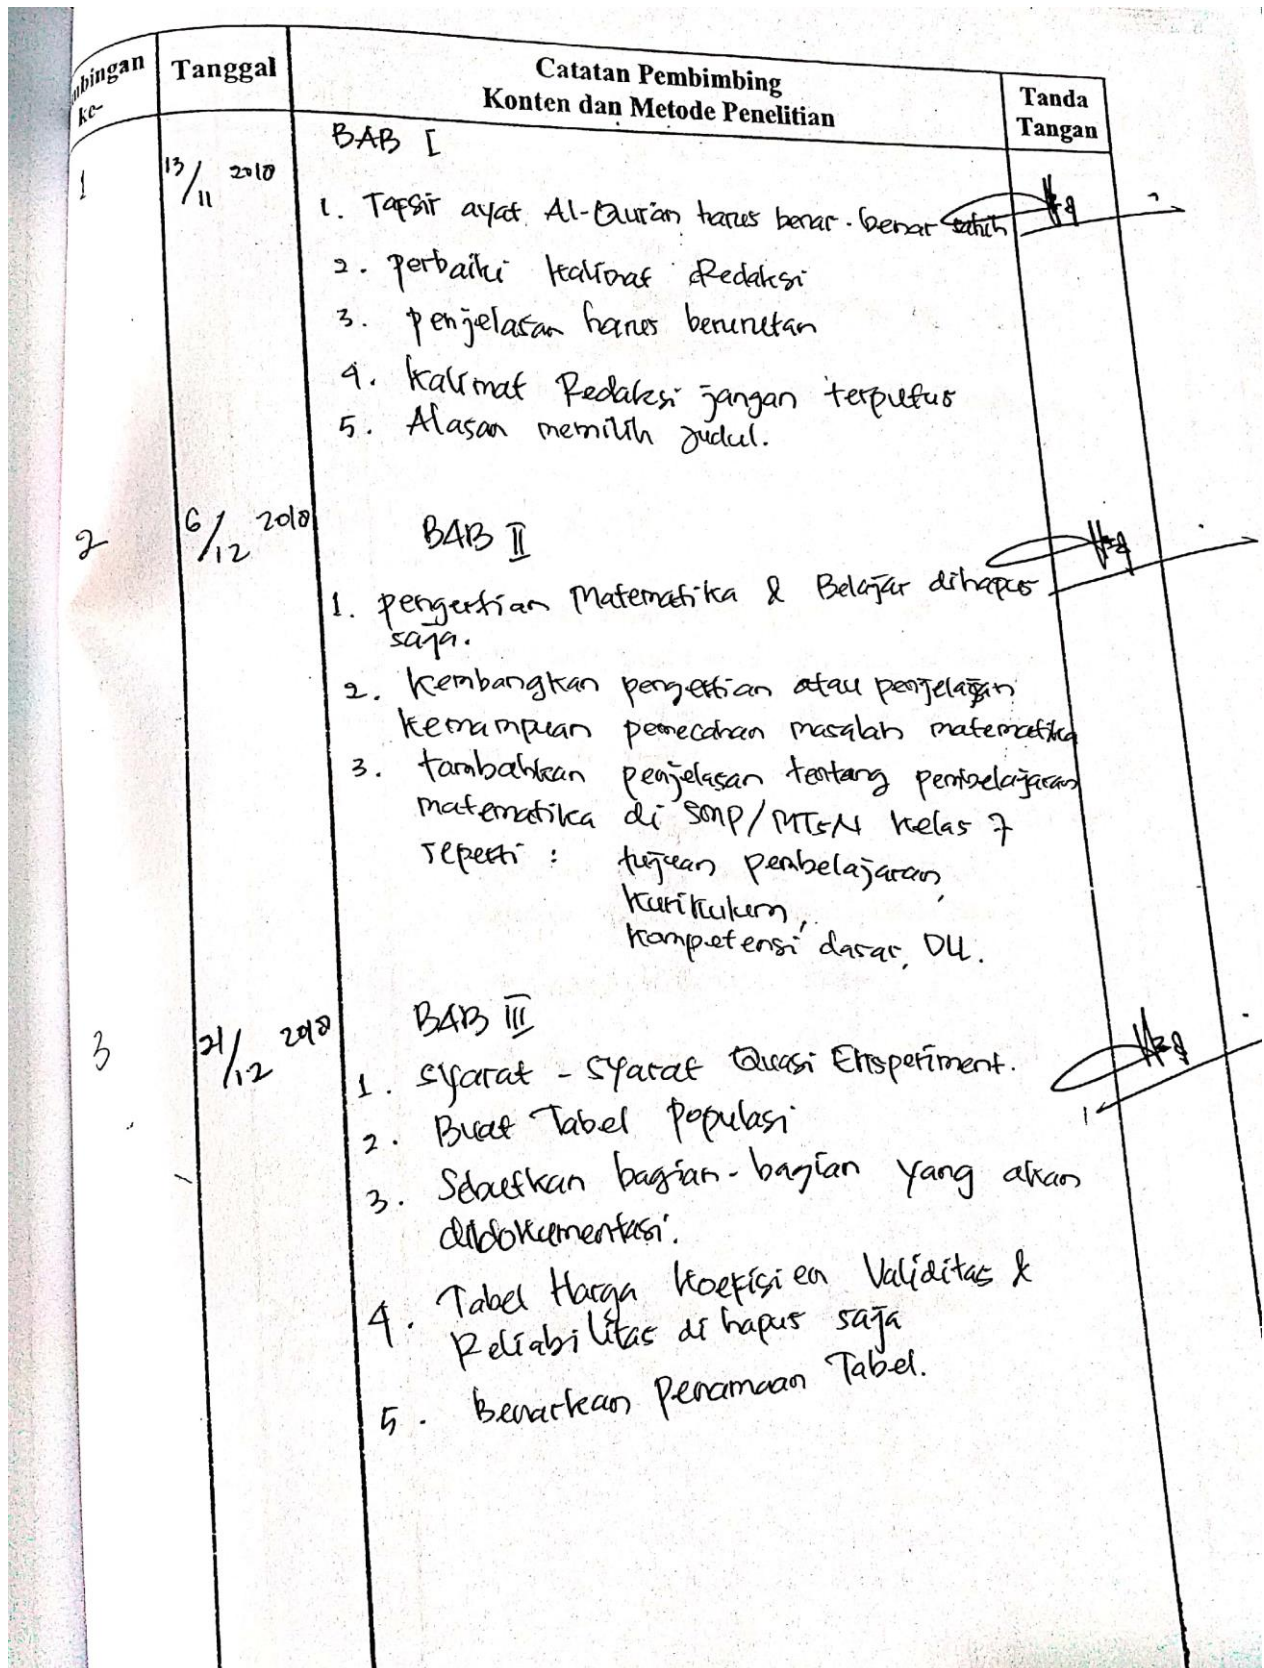 mbingan ke-
Tanggal
Catatan Pembimbing
Konten dan Metode Penelitian
Tanda
Tangan
1
13/11 2018
BAB I
1. Tafsir ayat Al-Qur'an harus benar-benar sahih
2. perbaiki kalimat Redaksi
3. penjelasan harus berurutan
4. Kalimat Redaksi jangan terputus
5. Alasan memilih judul.
2
6/12 2018
BAB II
1. pengertian Matematika & Belajar dihapus
saja.
2. Kembangkan pengertian atau penjelasan
kemampuan pemecahan masalah matematika
3. tambahkan penjelasan tentang pembelajaran
matematika di SMP/MTsN kelas 7
seperti : tujuan pembelajaran,
kurikulum,
kompetensi dasar, DLL.
3
21/12 2018
BAB III
1. Syarat - Syarat Quasi Eksperiment.
2. Buat Tabel Populasi
3. Sebutkan bagian-bagian yang akan
didokumentasi.
4. Tabel Harga Koefisien Validitas &
Reliabilitas di hapus saja
5. Benarkan Penamaan Tabel.